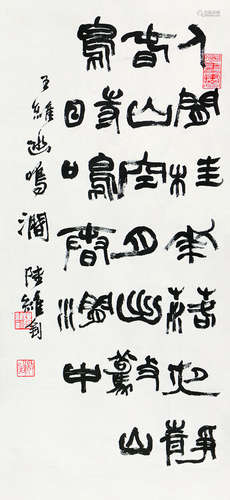 人閒桂華落夜靜
春山空月出驚山
鳥時鳴春澗中
王維幽鳴澗
陸維釗